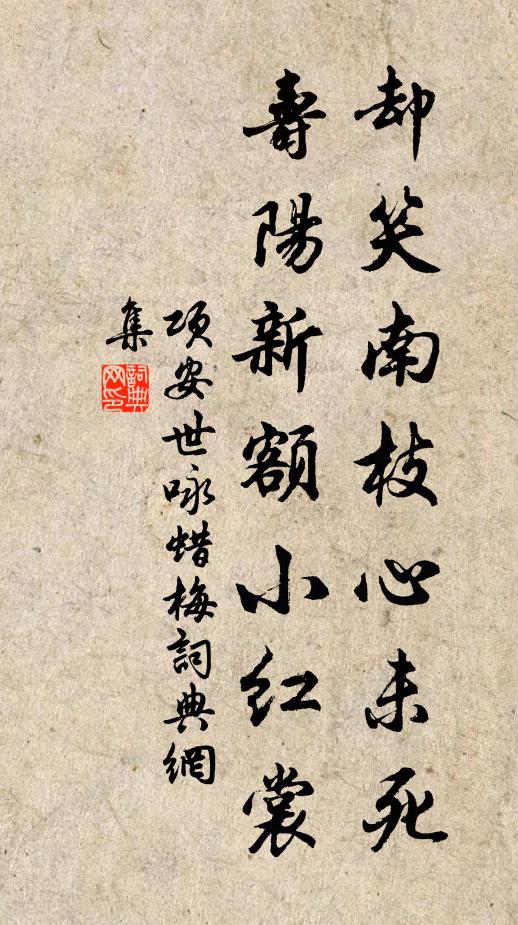 却笑南枝心未死
壽陽新額小红裳
项安世咏蜡梅詞典網
集
詞典
网印